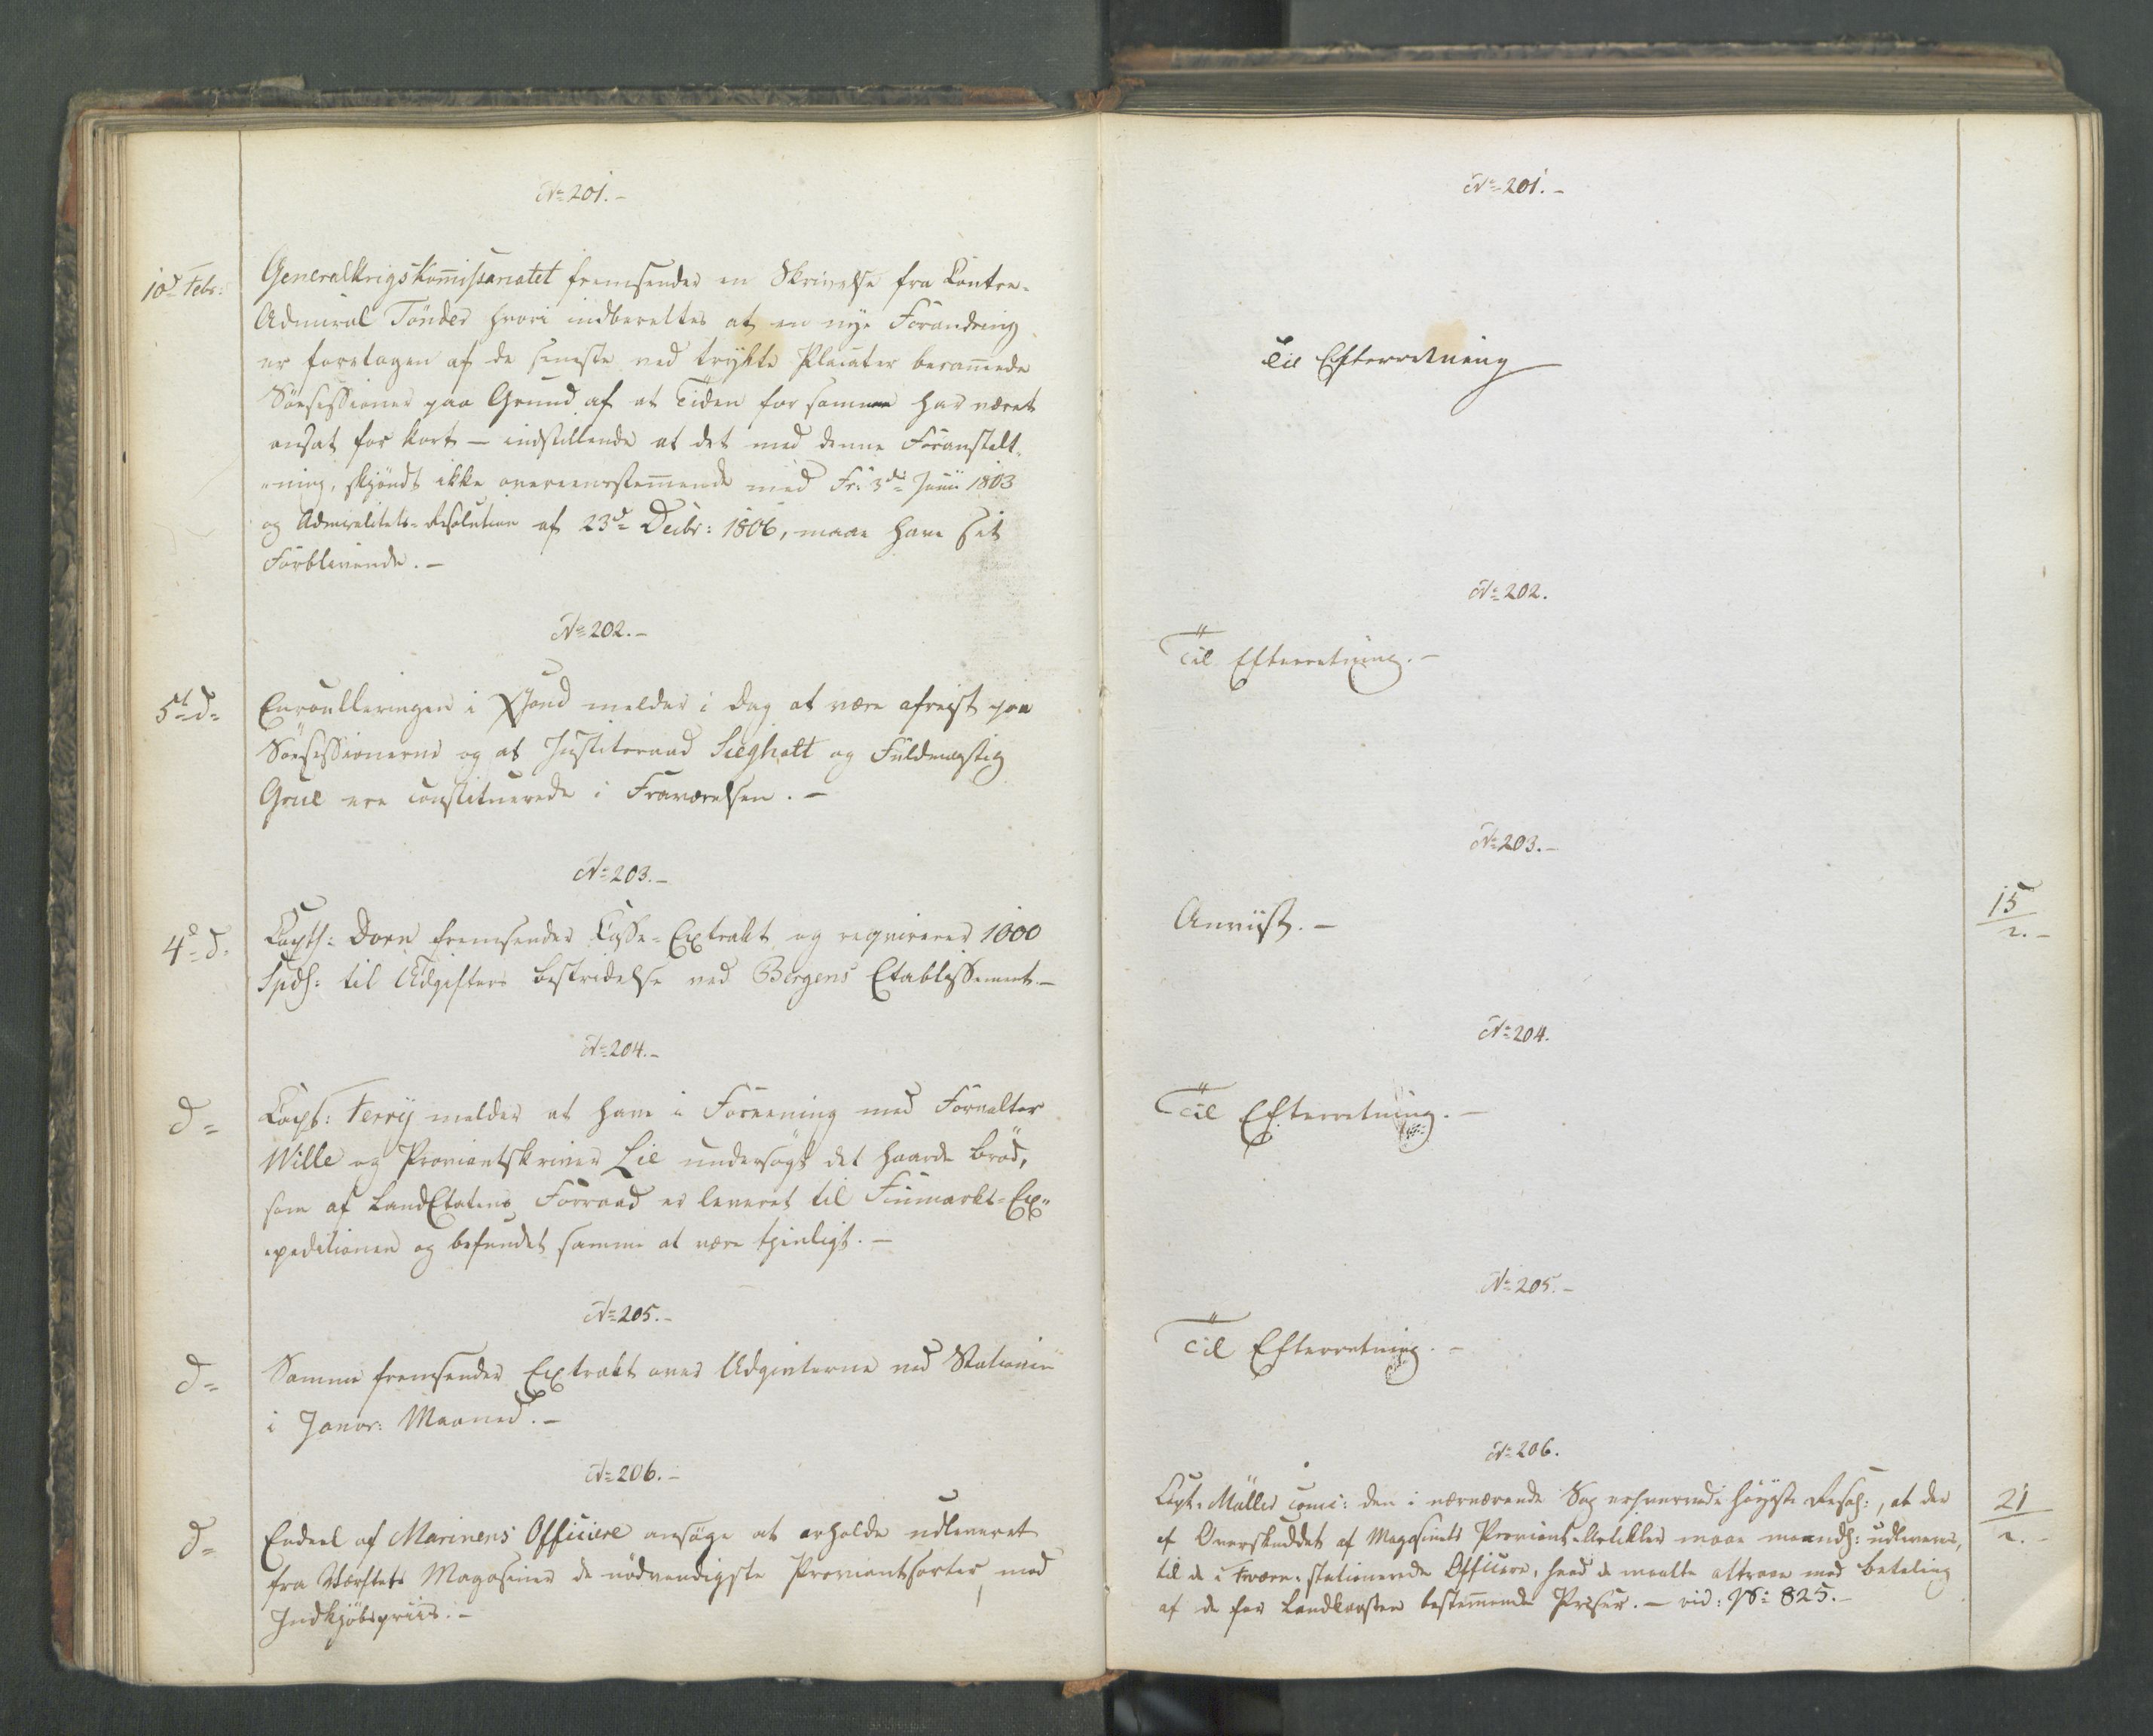 No 201.-
10de Febr:
GeneralkrigsKomissariatet fremsender en Skrivelse fra Contre-
Admiral Tönder hvori indberettes at en nye Forandring
er foretagen af de seneste ved trykte Placater beramede
Söesessioner paa Grund af at Tiden for samme har været
ansat for kort - indstillende at det med denne Foranstalt-
-ning, skjöndt ikke overeensstemende med Fr: 3die Junii 1803
og Admiralitets-Resolution af 23de Decbr: 1806, maae have sit
Forblivende. -
No 202.-
5te d=
Enroulleringen i Xsand melder i Dag at være afreist paa
Söesessionerne og at Justitsraad Siegholt og Fuldmægtig
Grue ere constituerede i Fraværelsen. -
No 203.-
4de d=
Capth: Dorn fremsender Casse-Extrakt og reqvirerer 1000
Spdh: til Udgifters bestridelse ved Bergens Etablissement.-
No 204.-
d=
Capt: Ferry melder at have i Forening med Forvalter
Wille og Proviantskriver Lie undersögt det haarde bröd,
som af LandEtatens Forraad er leveret til Finmarks-Ex-
-peditionen og befundet samme at være tjenligt. -
No 205.-
d=
Samme fremsender Extrakt over Udgivterne ved Stationen
i Janvr: Maaned. -
No 206.-
d=
Endeel af Marinens Officiere ansöge at erholde udleveret
fra Værftets Magasiner de nödvendigste Proviantsorter, mod
Indkjöbspriis. -
No 201.-
Til Efterretning
No 202.
Til Efterretning. -
No 203.-
Anviist. -
15
2. -
No 204.
Til Efterretning. -
No 205.-
Til Efterretning. -
No 206.
Capt. Müller comc: den i nærværende Sag erhvervede höyeste Resol:, at der
af Overskuddet af Magasinets Proviant-Artikler maae maandh: udleveres,
til de i Fværn: stationerede Officiere, hvad de maatte attraae mod betaling
af de for Landkassen bestemende Priser. - vid: No 825.-
21
2. -